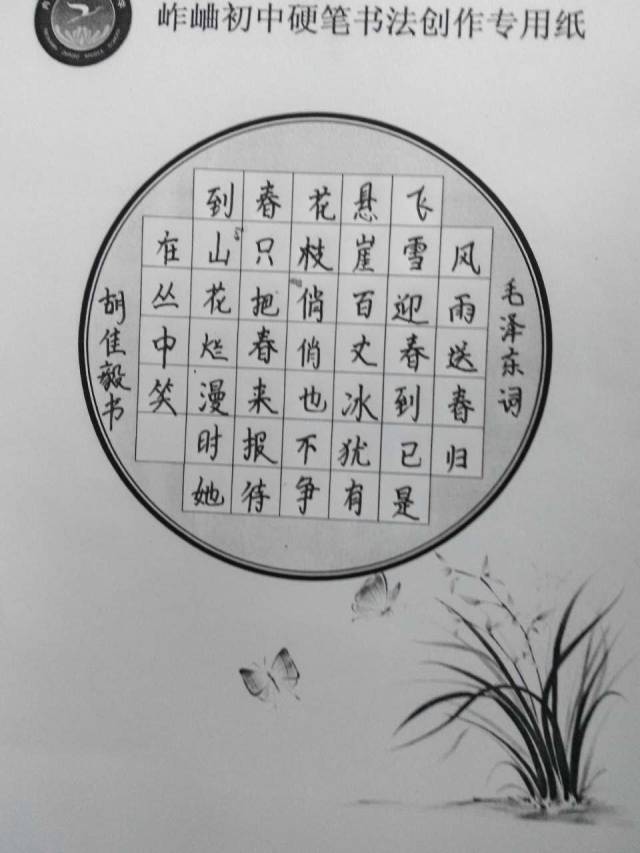 岞岫初中硬笔书法创作专用纸
毛泽东词
风雨送春归
飞雪迎春到已是
悬崖百丈冰犹有
花枝俏俏也不争
春只把春来报待
到山花烂漫时她
在丛中笑
胡佳毅书